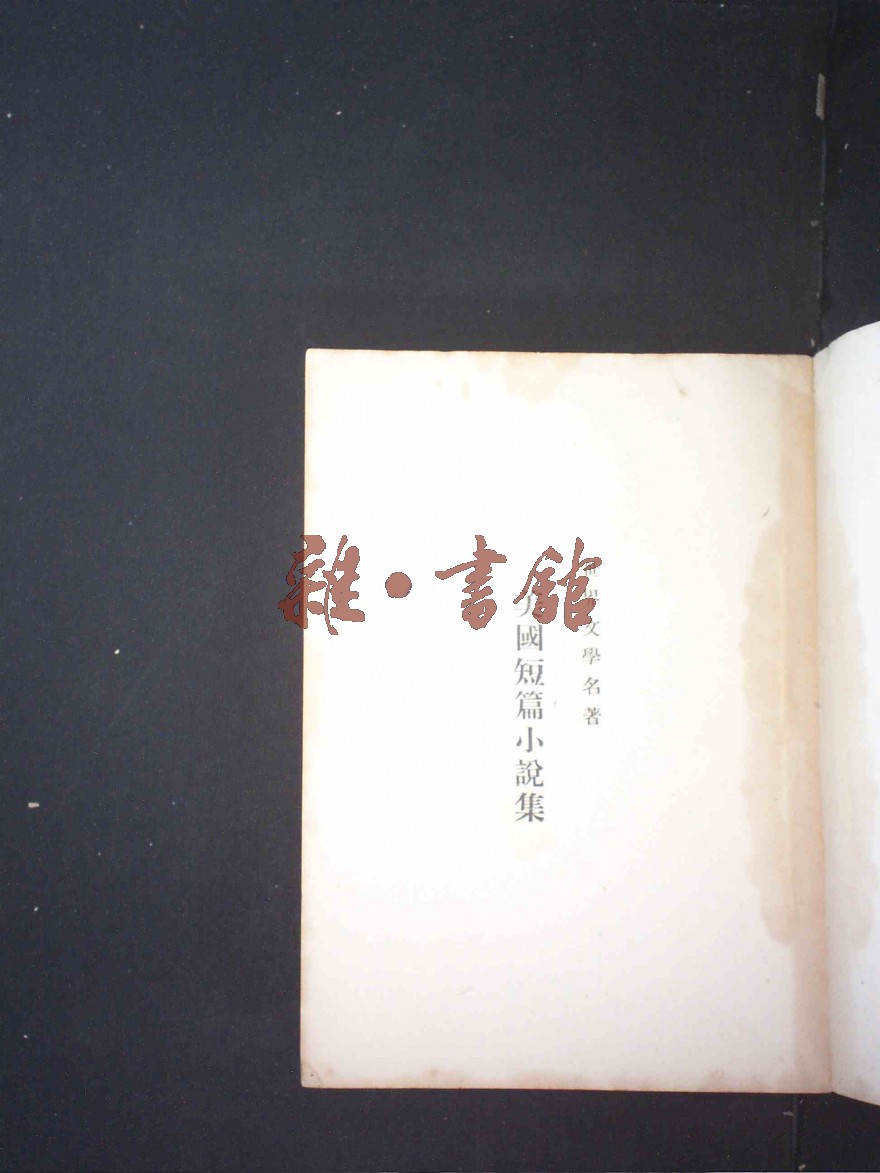 世界文學名著
國短篇小說集
雜·書館